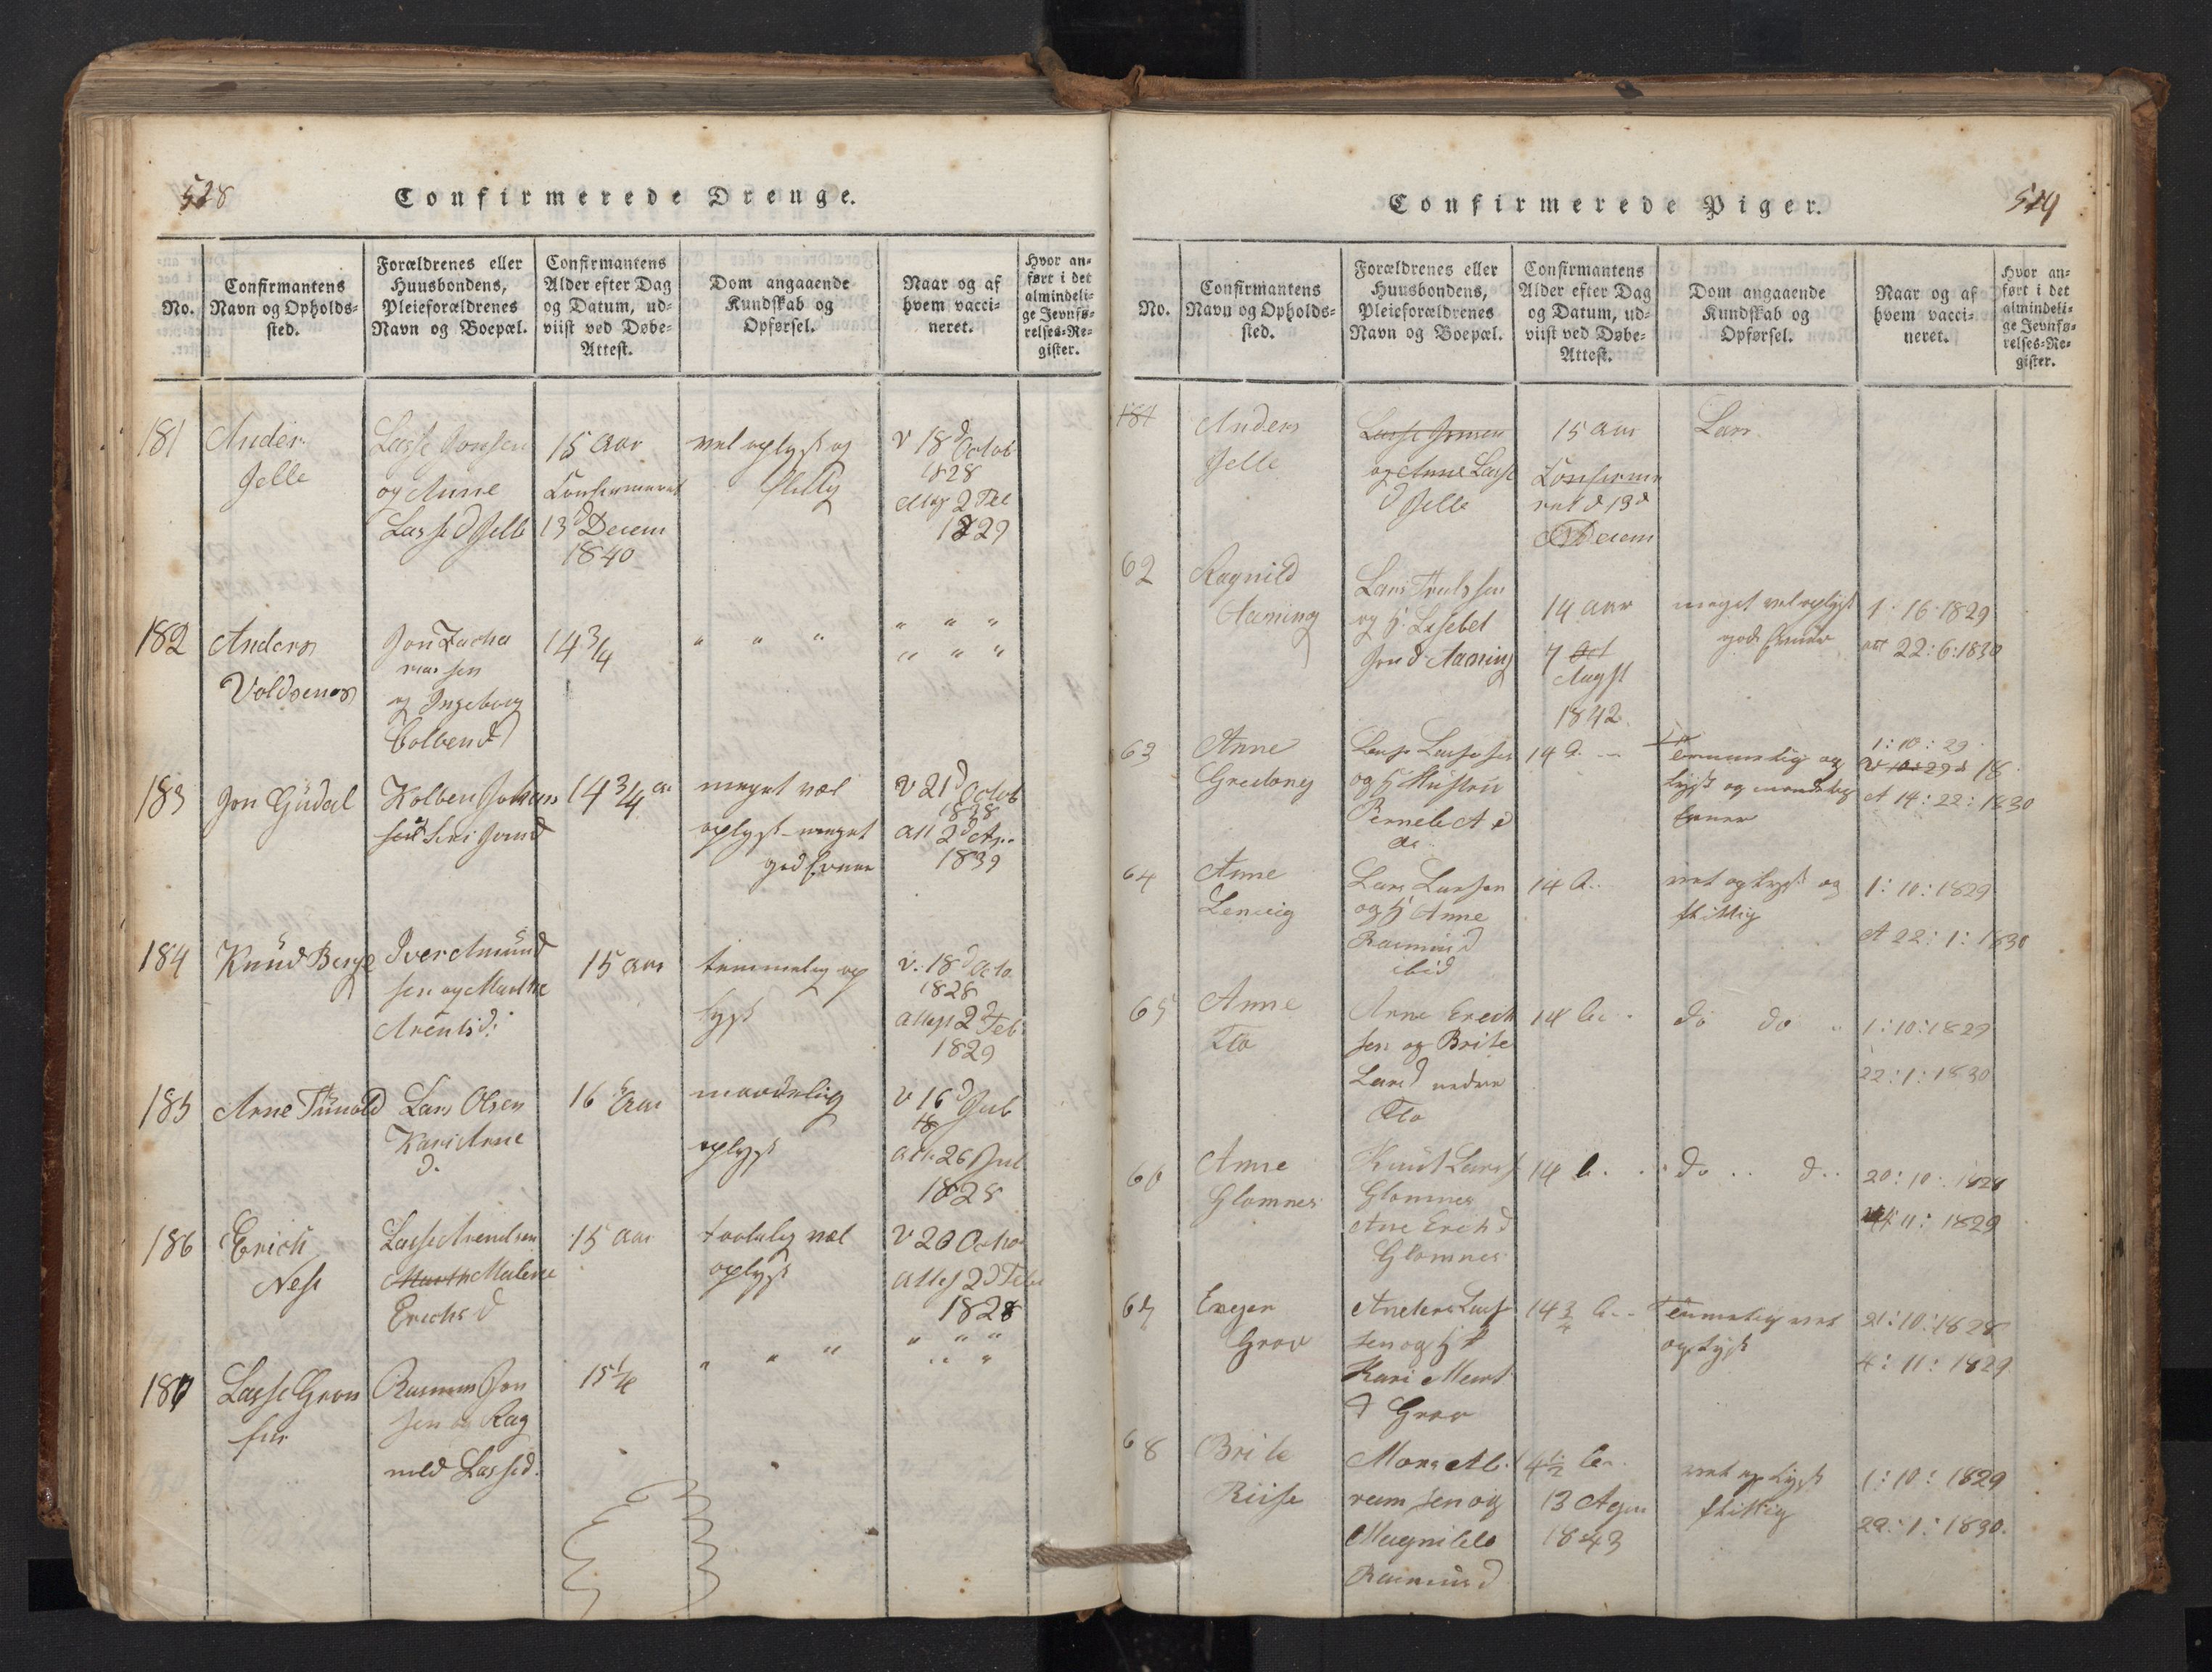 528
Confirmerede Drenge.
No.
Confirmantens
Navn og Opholds-
sted.
Forældrenes eller
Huusbondens,
Pleieforældrenes
Navn og Boepæl.
Confirmantens
Alder efter Dag
og Datum, ud-
viist ved Døbe-
Attest.
Dom angaaende
Kundskab og
Opførsel.
Naar og af
hvem vacci-
neret.
Hvor an-
ført i det
almindeli-
ge Jevnfø-
relses-Re-
gister.
181
Anders
Jelle
Lasse Jonsen
og Anne
Lasse d Jelle
15 Aar
Confirmeret
13 d Decem
1840
vel oplyst og
flittig
v 18 d Octob
1828
Att 2 Feb
1829
182
Anders
Voldsenes
Jon Zacha
riassen
og Ingeborg
Colbend
14 3/4
" " "
" " "
" " "
183
Jon Gudal
Kolben Johans
sen Siri Jonsd
14 3/4 a
meget vel
oplyst meget
god Evner
v 21 d Octob
1828
att 2 d Ap
1839
184
Knud Berge
Iver Amund
sen og Marthe
Arentsd:
15 Aar
temmelig op
lyst
v. 18 d Octo
1828
attest 2 d Feb
1829
185
Arne Tunold
Lars Olsen
Kari Arne
d.
16 Aar
maadelig
oplyst
v 16 d Jul
18
att 26 Jul
1828
186
Erich
Nese
Lasse Arentsen
Marth Malene
Erichs d
15 Aar
taalelig vel
oplyst
v 20 Octo
attest 2 d Feb
1828
187
Lasse Gron
fur
Rasmus Jon
sen og Rag
nild Lassed.
15 1/4
" " "
" " "
" "
519
Confirmerede Piger.
No.
Confirmantens
Navn og Opholds-
sted.
Forældrenes eller
Huusbondens,
Pleieforældrenes
Navn og Boepæl.
Confirmantens
Alder efter Dag
og Datum, ud-
viist ved Døbe-
Attest.
Dom angaaende
Kundskab og
Opførsel.
Naar og af
hvem vacci-
neret.
Hvor an-
ført i det
almindeli-
ge Jevnfø-
relses-Re-
gister.
181
Anders
Jelle
Lasse Jonsen
og Anne Lasse
d Jelle
15 Aar
Confirme
ret d 13 d
Decem
Lars
62
Ragnild
Aaning
Lars Trulssen
og H. Lisebet
Jon d Aaning
14 Aar
7 Oct
Augst
1842
meget vel oplyst
gode Evner
1:16:1829
att 22:6:1830
63
Anne
Gredong
Lasse Lassesen
og H. Hustru
Pernele A d
14 A.
Temmelig og
lyst og maadelig
Evner
1:10:29
v 10:29: 18
A 14:22:1830
64
Anne
Lenvig
Lars Larsen
og H Anne
Rasmusd
ibid
14 A.
vel oplyst og
flittig
1:10:1829
A 22:1:1830
65
Anne
Flo
Arne Erich
sen og Brite
Larsd nedre
Flo
14 A.
do do
1:10:1829
22:1:1830
66
Anne
Glomnes
Knut Larss
Glomnes
Ane Erichd
Glomnes
14 A.
do d.
20:10:1828
4:11:1829
67
Grov
Anders Lasse
sen og H
Kari Mart
d Grov
14 3/4 A.
Temmelig vel
oplyst
21:10:1828
4:11:1829
68
Brite
Riise
Mons Ab
ram sen og
Magnilda
Rasmusd
14 1/2 A.
13 Agu
1843
vel oplyst
flittig
1:10:1829
22:1:1830.